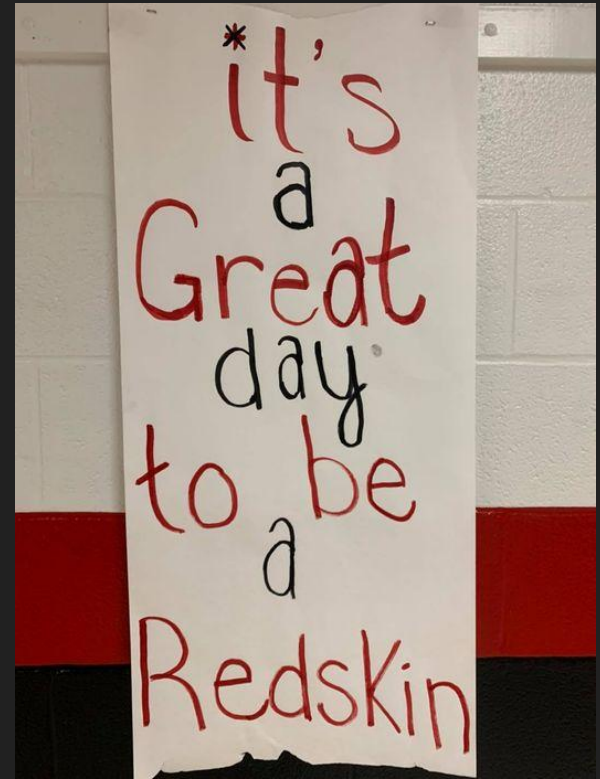 it's
a
Great
day
to be
a
Redskin